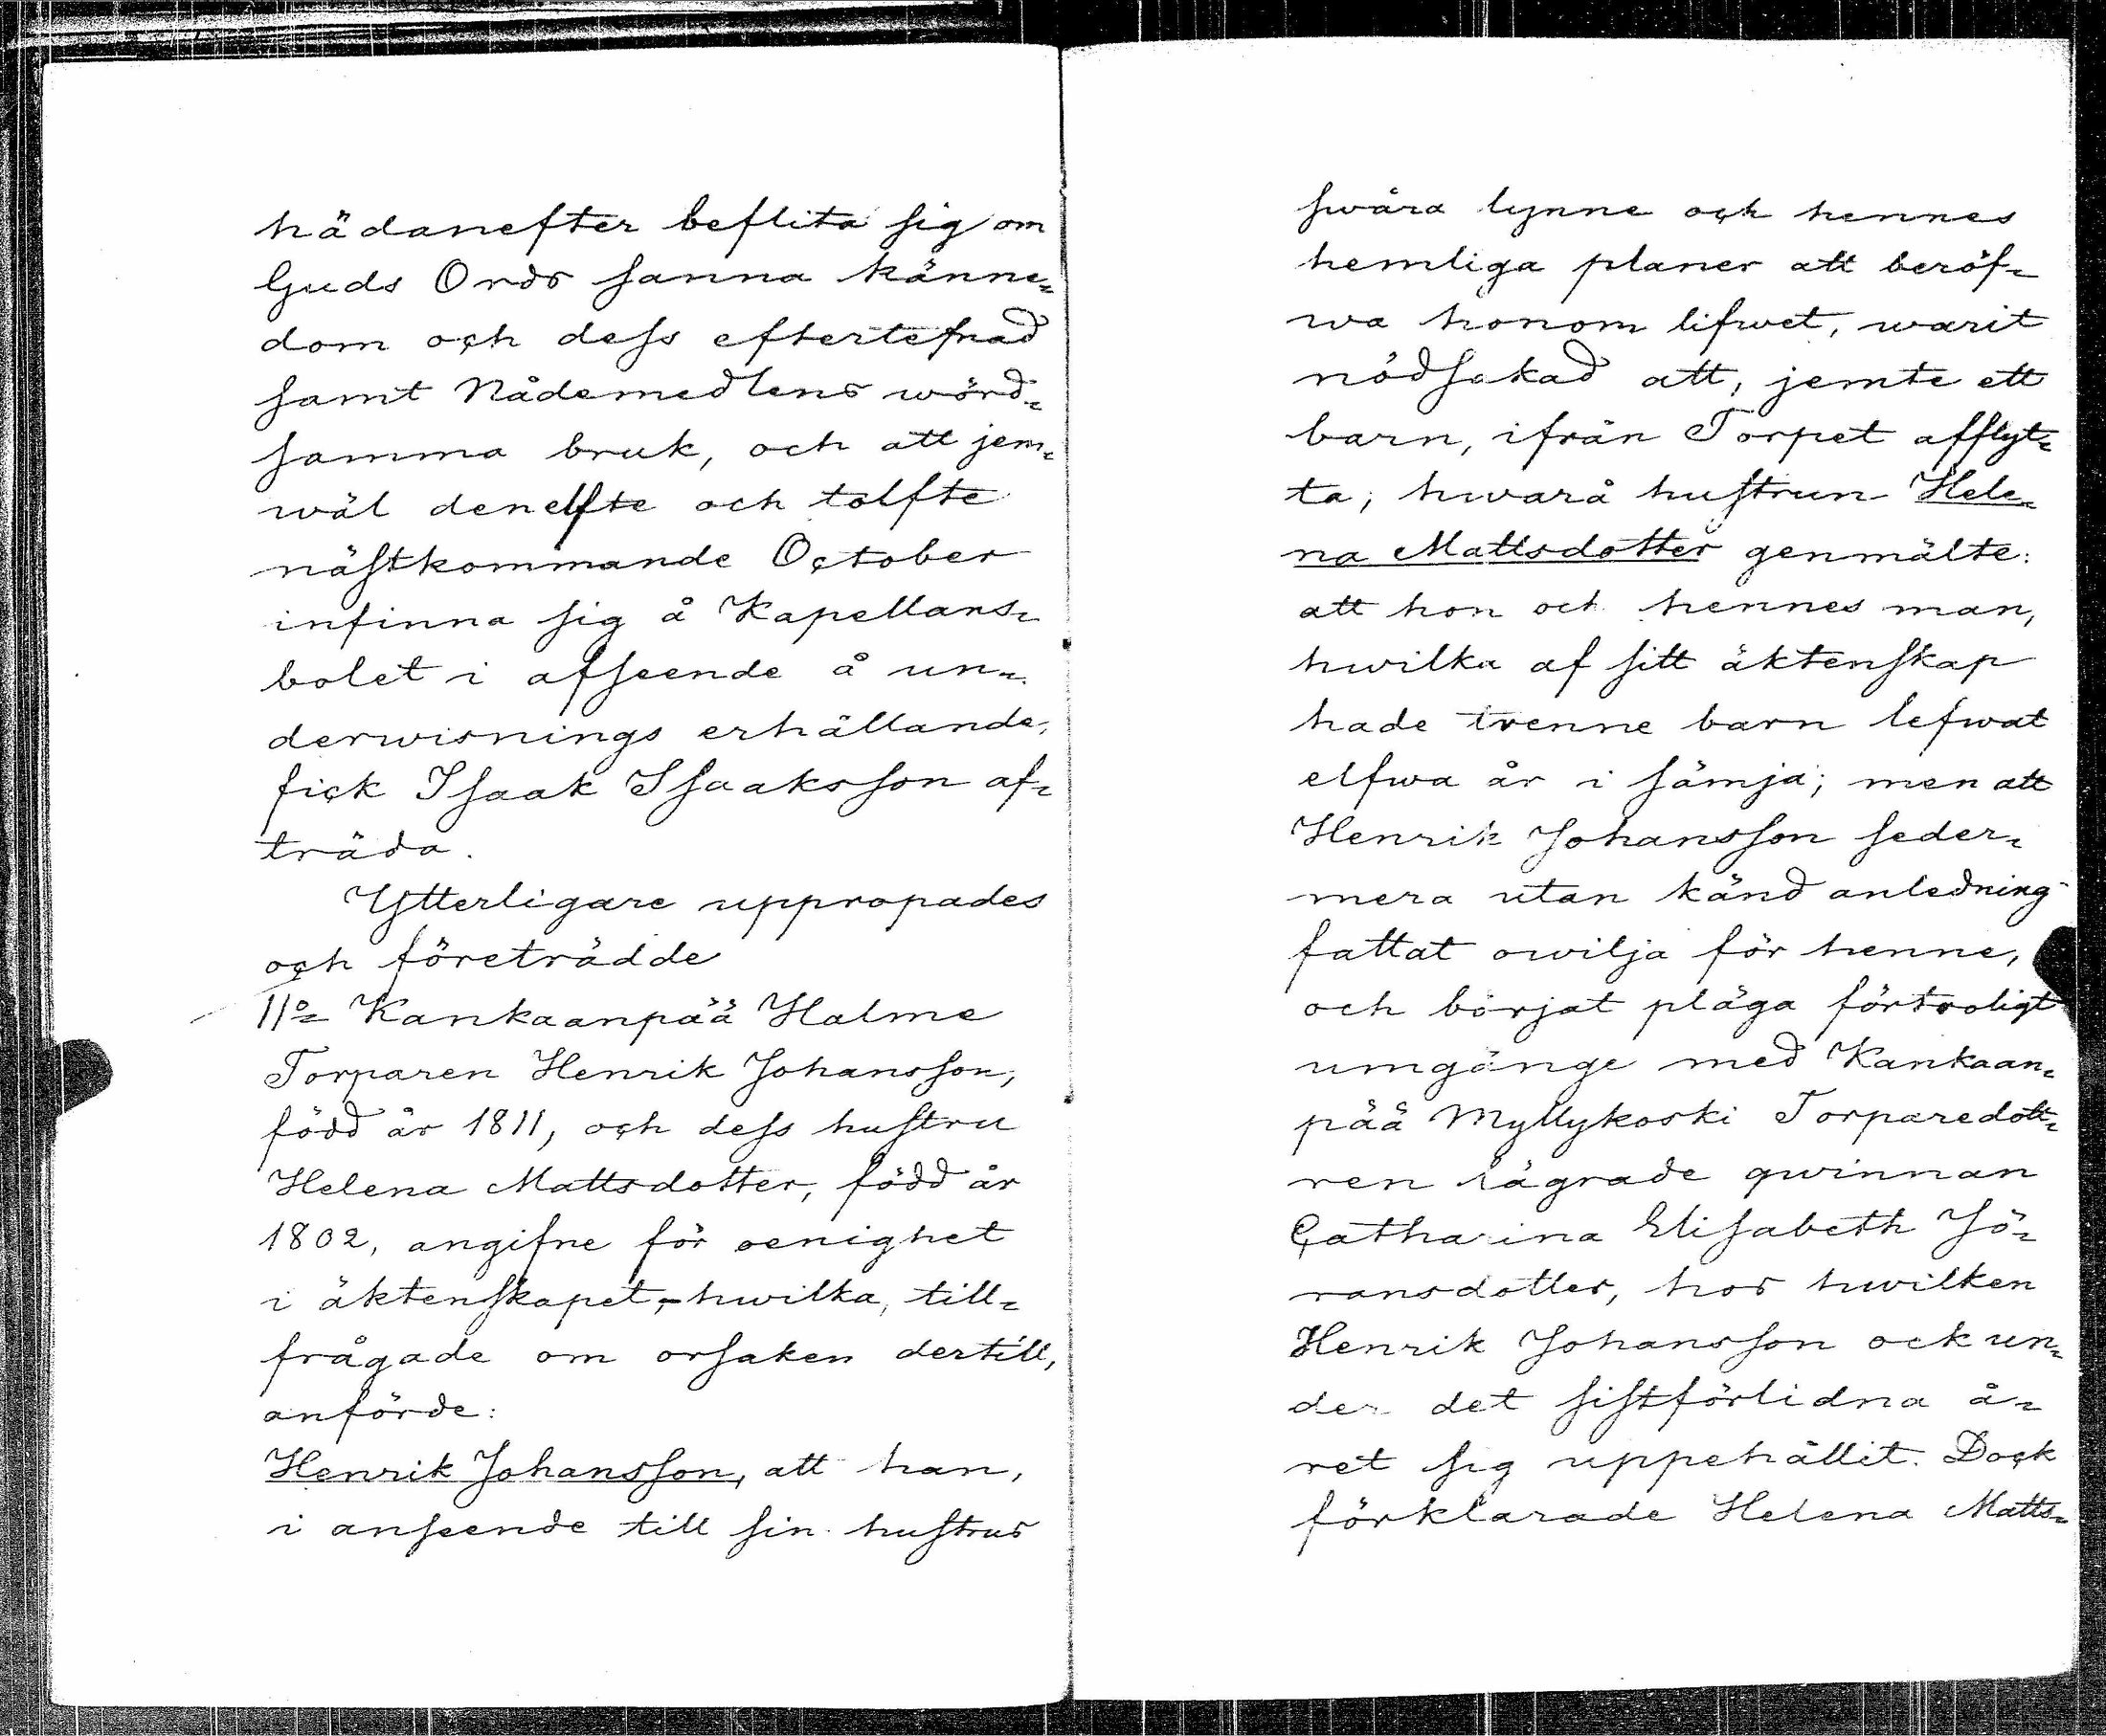 hädanefter beflita sig om
Guds Ords sanna känne=
dom och dess efterlefnad
samt Nådemedlens wörd=
samma bruk, och att jem=
wäl den elfte och tolfte
nästkommande October
infinna sig å Kapellans=
bolet i afseende å un=
derwisnings erhållande,
fick Isaak Isaaksson af=
träda.
Ytterligare uppropades
och företrädde
11o= Kankaanpää Halme
Torparen Henrik Johansson,
född år 1811, och dess hustru
Helena Mattsdotter, född år
1802, angifne för oenighet
i äktenskapet,-hwilka, till=
frågade om orsaken dertill,
anförde:
Henrik Johansson, att han,
i anseende till sin hustrus
swåra lynne och hennes
hemliga planer att beröf=
wa honom lifwet, warit
nödsakad att, jemte ett
barn, ifrån Torpet afflyt=
ta; hwarå hustrun Hele=
na Mattsdotter genmälte:
att hon och hennes man,
hwilka af sitt äktenskap
hade trenne barn lefwat
elfwa år i sämja; men att
Henrik Johansson seder=
mera utan känd anledning
fattat owilja för henne,
och börjat pläga förtroligt
umgänge med Kankaan=
pää Myllykoski Torparedott=
ren lägrade qwinnan
Catharina Elisabeth Jö=
ransdotter, hos hwilken
Henrik Johansson ock un=
der det sistförlidna å=
ret sig uppehållit. Dock
förklarade Helena Matts=